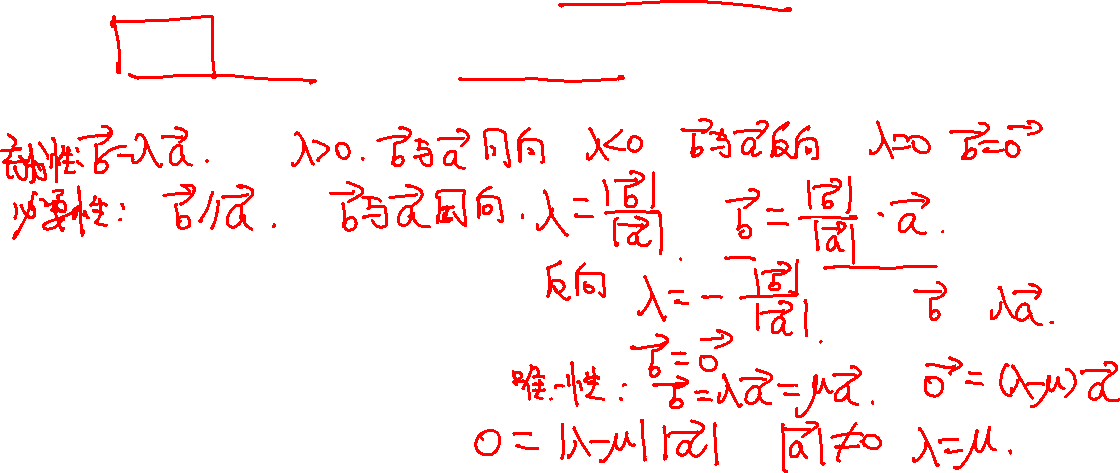 充分性:b⃗=λa⃗. λ>0. b⃗与a⃗同向 λ<0 b⃗与a⃗反向 λ=0 b⃗=0⃗
必要性: b⃗//a⃗. b⃗与a⃗同向. λ=|b⃗|/|a⃗|. b⃗=|b⃗|/|a⃗|·a⃗.
反向 λ=-|b⃗|/|a⃗|. b⃗ λa⃗.
b⃗=0⃗
唯一性: b⃗=λa⃗=μa⃗. 0⃗=(λ-μ)a⃗
0=|λ-μ||a⃗| |a⃗|≠0 λ=μ.